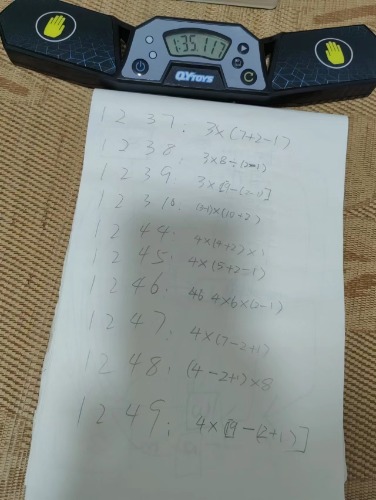 1:35.117
QYTOYS
1 2 3 7. 3×(7+2-1)
1 2 3 8: 3×8÷(2-1)
1 2 3 9: 3×[9-(2-1)]
1 2 3 10. (3-1)×(10+2)
1 2 4 4: 4×(4+2)×1
1 2 4 5: 4×(5+2-1)
1 2 4 6: 4×6×(2-1)
1 2 4 7: 4×(7-2+1)
1 2 4 8: (4-2+1)×8
1 2 4 9: 4×[9-(2+1)]